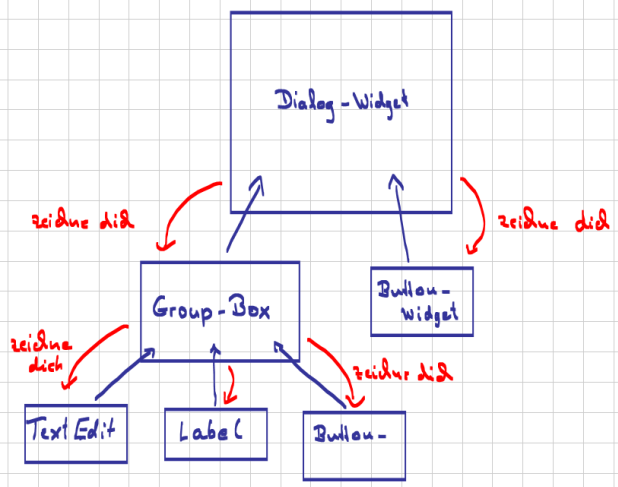 Dialog-Widget
zeichne dich
zeichne dich
Group-Box
Button-
Widget
zeichne
dich
zeichne dich
Text Edit
Label
Button-